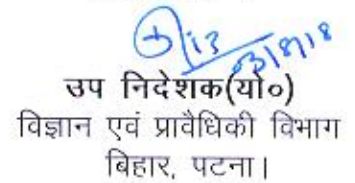 उप निदेशक(यो०)
विज्ञान एवं प्रावैधिकी विभाग
बिहार, पटना।